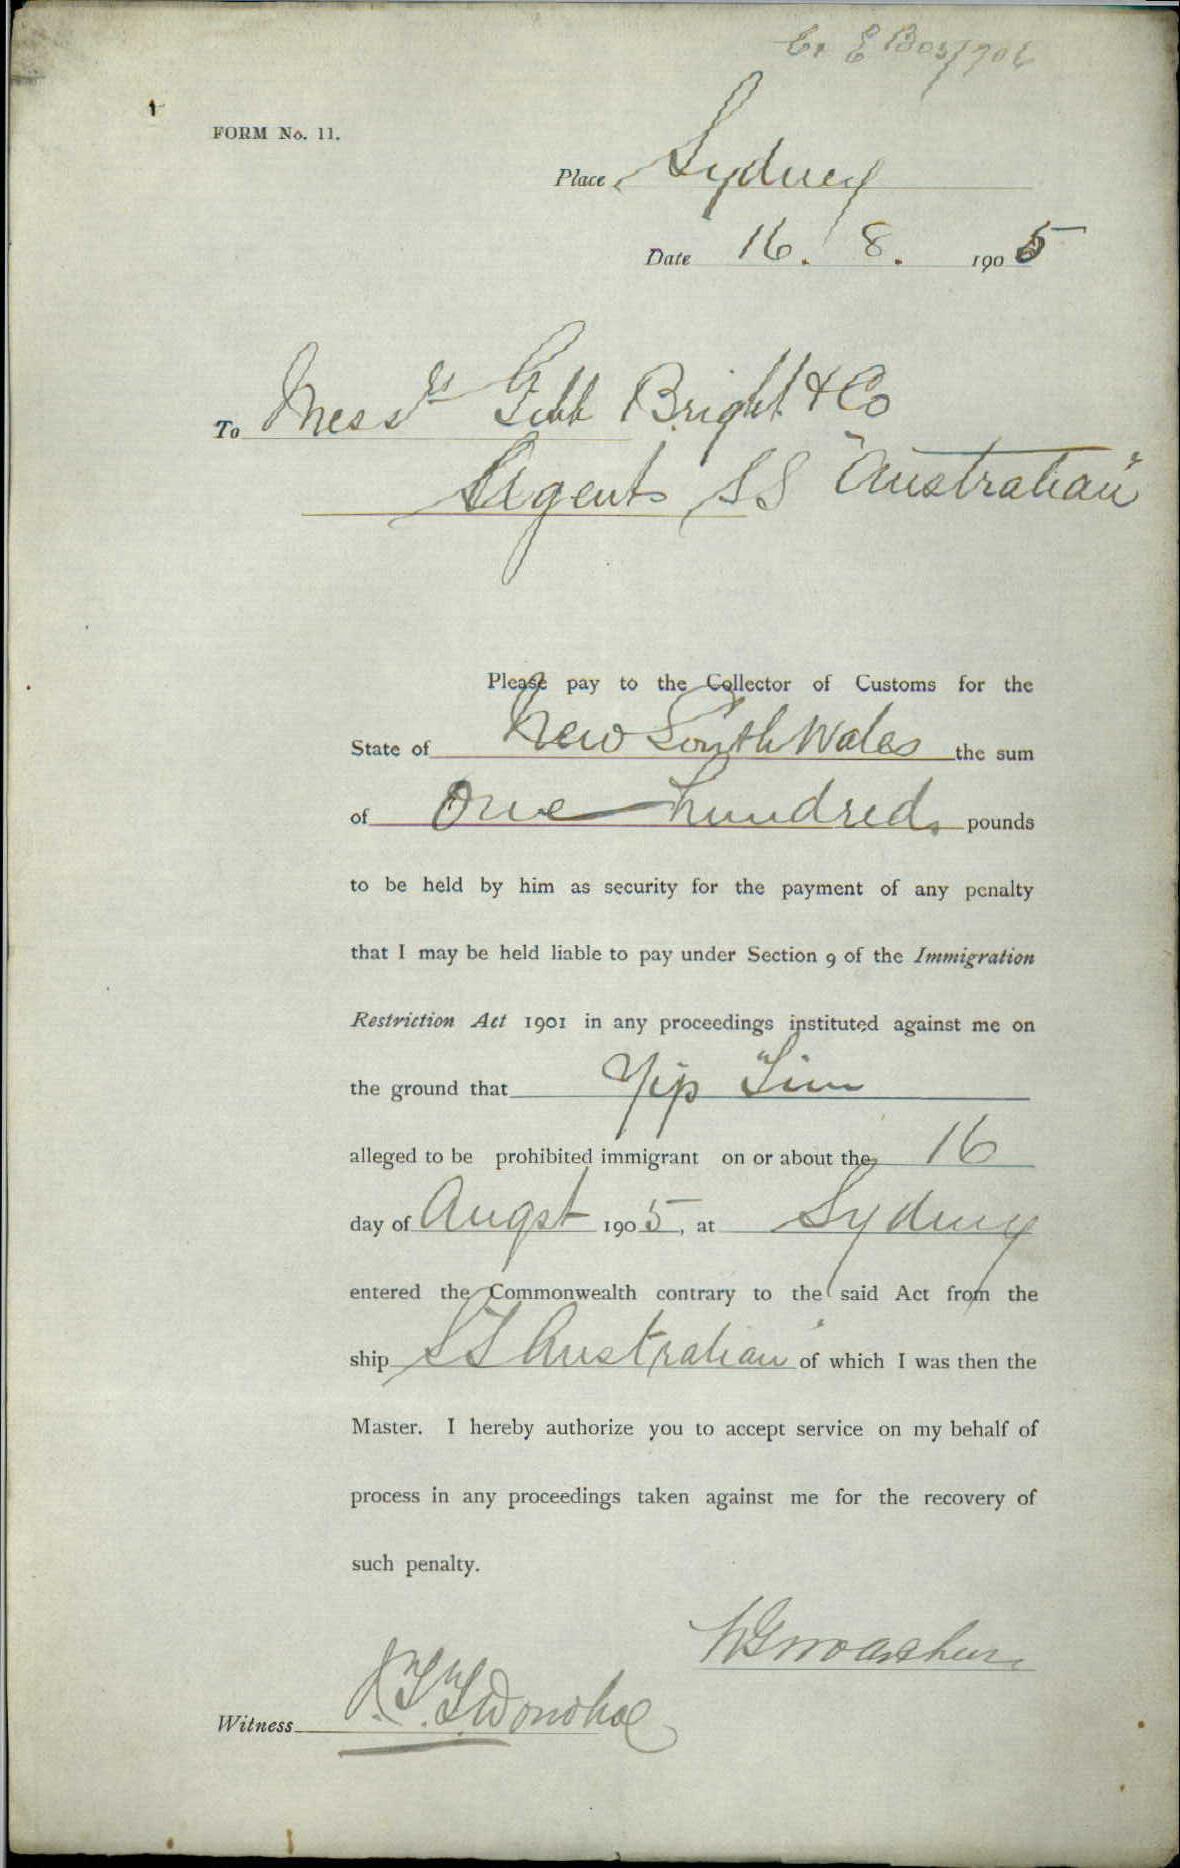 FORM No. 11.
Place Sydney
Date 16. 8. 1905
To Messrs Gibb Bright & Co
Agents SS "Australian"
Please pay to the Collector of Customs for the
State of New South Wales the sum
of One hundred pounds
to be held by him as security for the payment of any penalty
that I may be held liable to pay under Section 9 of the Immigration
Restriction Act 1901 in any proceedings instituted against me on
the ground that Yip
alleged to be prohibited immigrant on or about the 16
day of Augst 1905, at Sydney
entered the Commonwealth contrary to the said Act from the
ship SS Australian" of which I was then the
Master. I hereby authorize you to accept service on my behalf of
process in any proceedings taken against me for the recovery of
such penalty.
Witness Donohoe